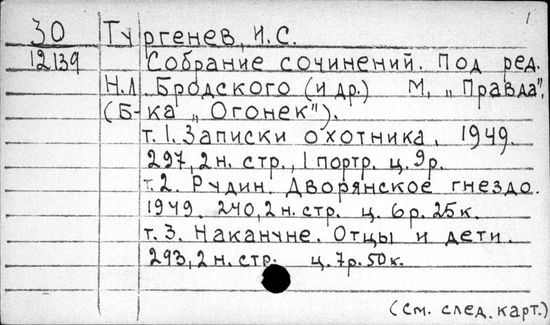 1
30 Тургенев, И.С.
12139 Собрание сочинений. Под ред.
Н.Л. Бродского (и др.) М, „Правда",
(Б-ка „Огонек").
т. 1. Записки охотника. 1949.
297, 2 н. стр., 1 портр. ц. 9р.
т. 2. Рудин. Дворянское гнездо.
1949. 240, 2 н. стр. ц. 6р. 25к.
т. 3. Накануне. Отцы и дети.
293, 2 н. стр. ц. 7р. 50к.
(См. след. карт.)